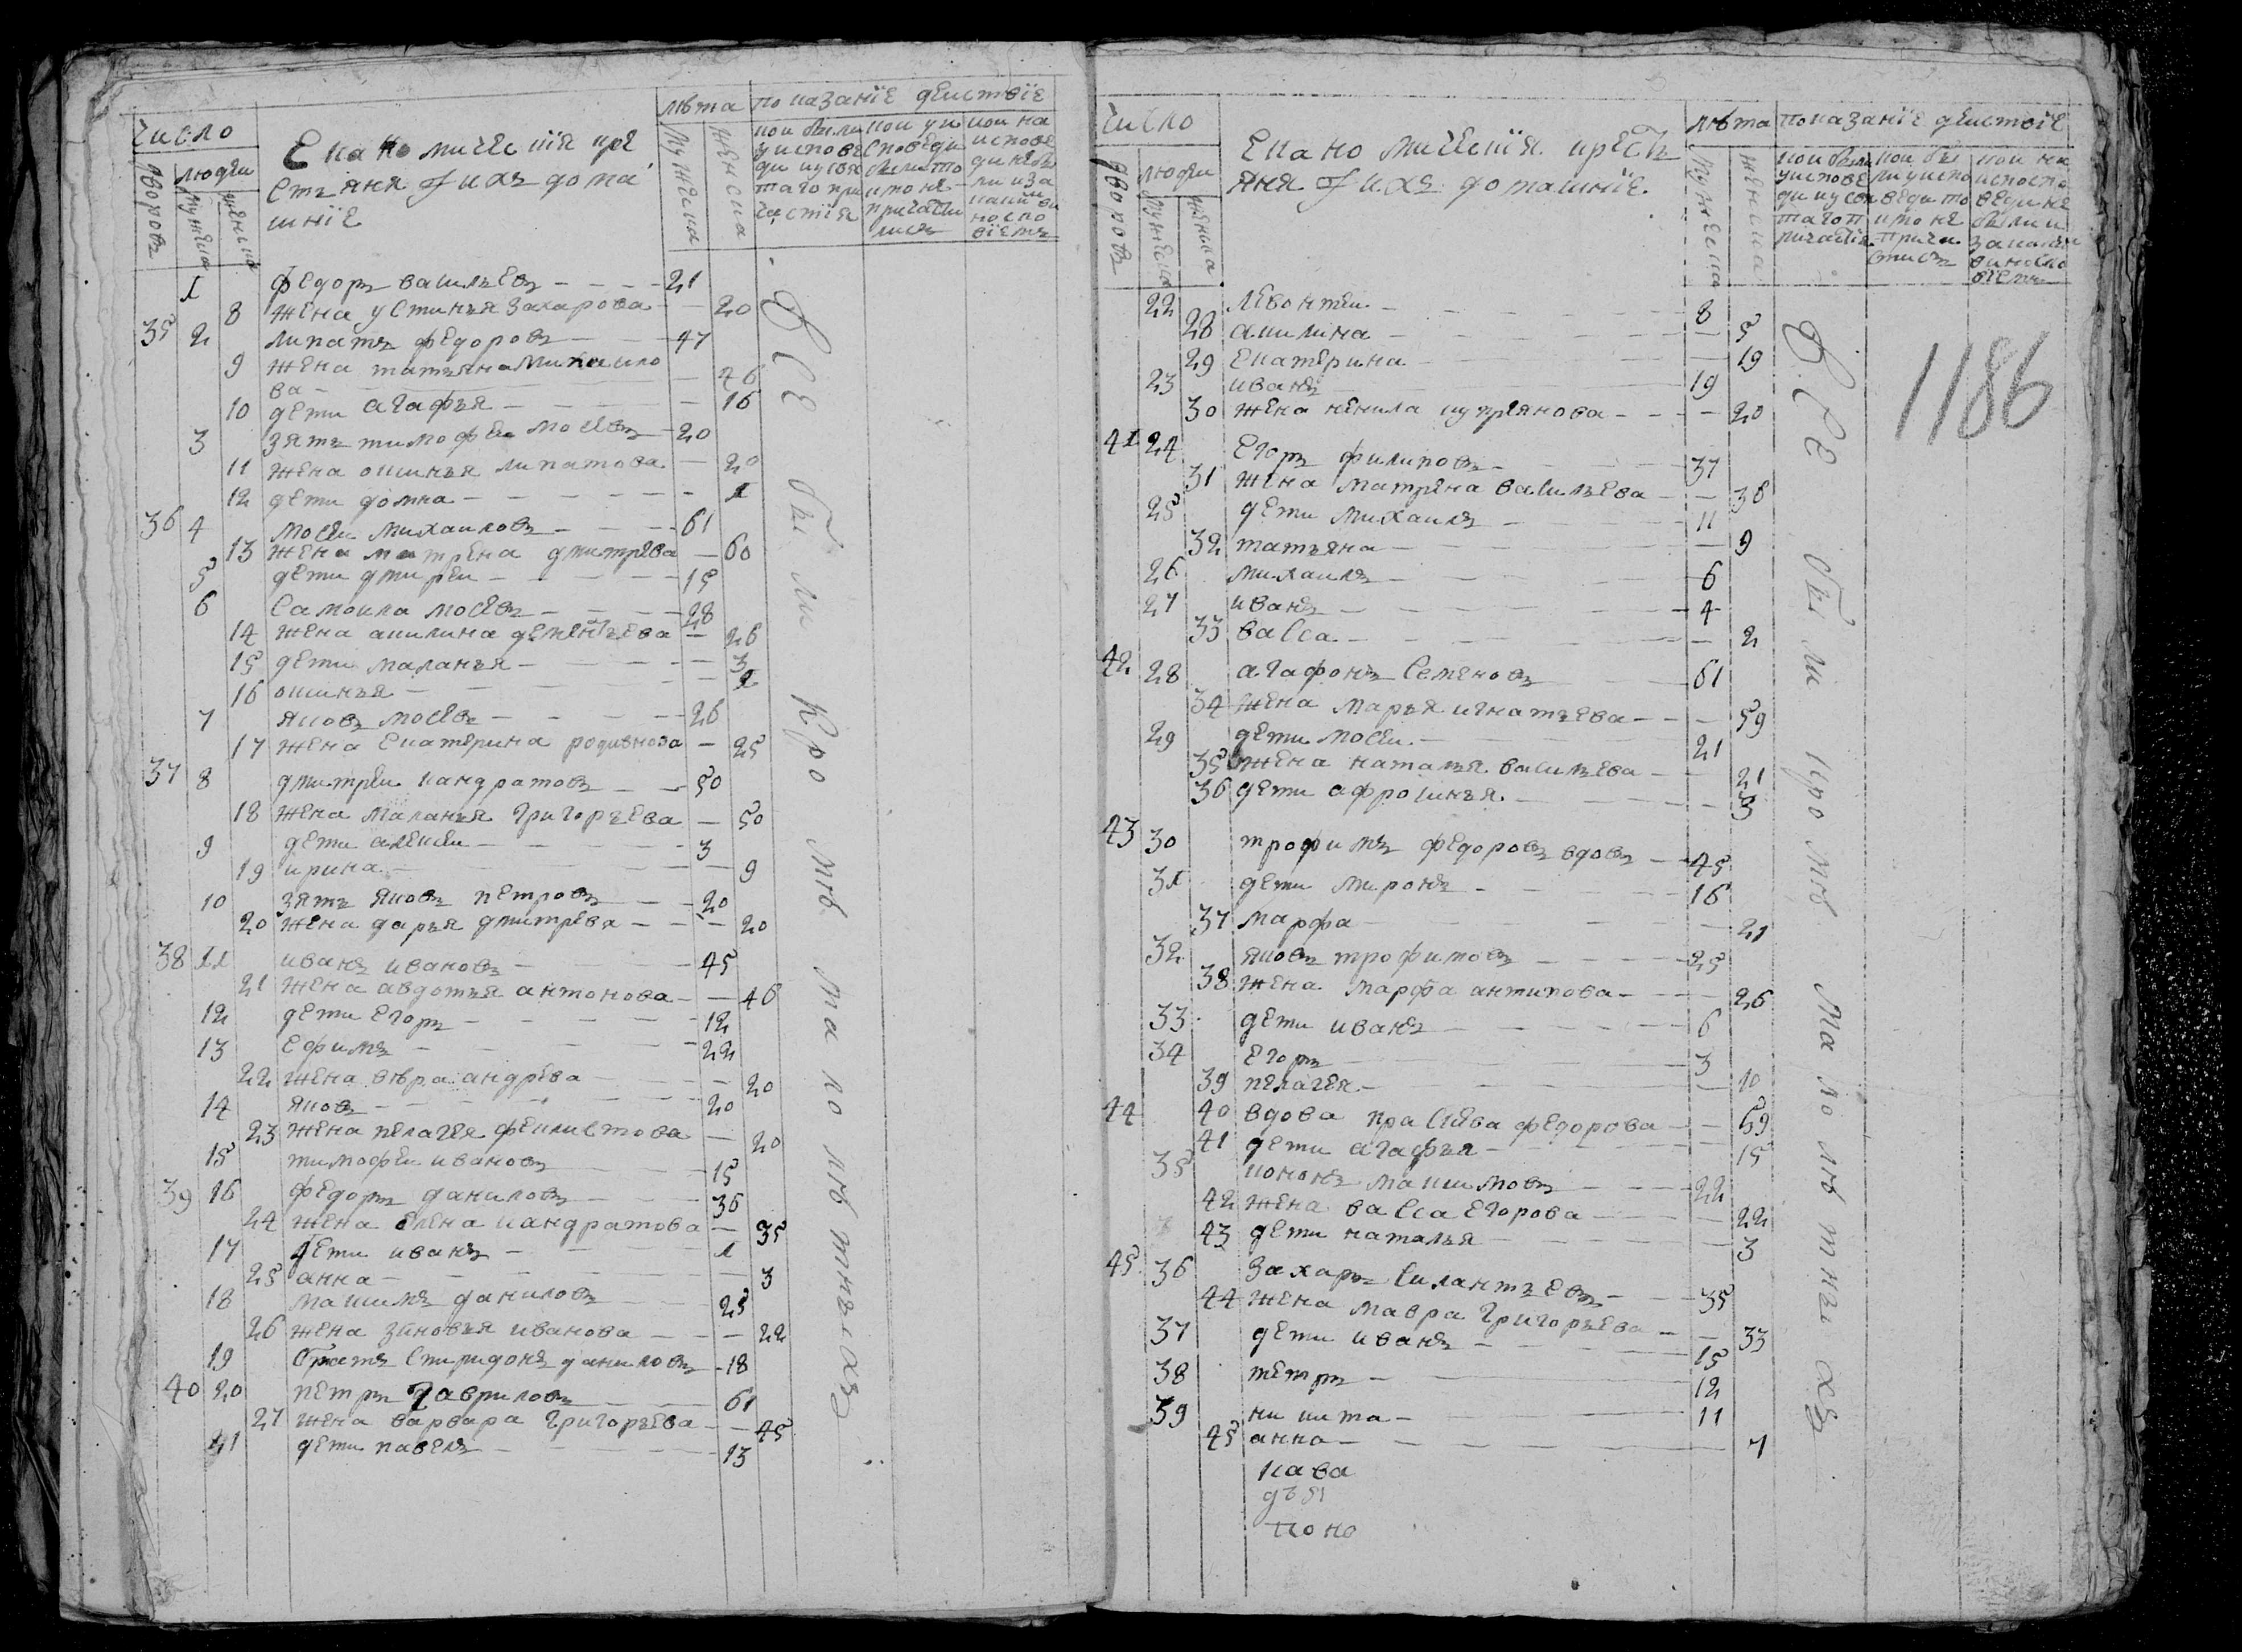 число
дворовъ
людеи
мужеска
женска
Екано мическия кре
стъ яня и ихъ дома
шнїе
лѣта
мужеска
женска
показанїе деиствїе
кои были
у испове
ди и у свя
таго при
частїя
кои у и
споведи
были то
кмо не
причасти
лися
кои на
испове
ди не бы
ли и за
каии ви
но спо
вїемъ
1 федоръ васильевъ - - - 21
8 жена устинья захарова - 20
35 2 липатъ федоровъ - - 47
9 жена татьяна михаило
ва - - 46
10 дети агафья - - - 16
3 зять тимофеи мосевъ - 20
11 жена ошинья липатова - 20
12 дети домна - - - 1
36 4 мосеи михаиловъ - - - 61
13 жена матрена дмитрева - 60
5 дети дмиреи - - - 15
6 самоила мосевъ - - - 28
14 жена акилина дементьева - 26
15 дети маланья - - - 3
16 ошинья - - - 1
7 яковъ мосевъ - - - 26
17 жена екатерина родивнова - 25
37 8 дмитреи кандратовъ - - 50
18 жена маланья григорьева - 50
9 дети алексеи - - - 3
19 ирина - - - 9
10 зять яковъ петровъ - - 20
20 жена дарья дмитрева - - 20
38 11 иванъ ивановъ - - - 45
21 жена авдотья антонова - - 46
12 дети егоръ - - - 12
13 ефимъ - - - 22
22 жена вѣра андрева - - - 20
14 яковъ - - - 20
23 жена пелагея феклистова - 20
15 тимофеи ивановъ - - 15
39 16 федоръ даниловъ - - - 36
24 жена елена кандратова - 35
17 дети иванъ - - - 1
25 анна - - - 3
18 макимъ даниловъ - - 25
26 жена зиновья иванова - - - 22
19 братъ спиридонъ даниловъ - 18
40 20 петръ гавриловъ - - - 61
27 жена варвара григорьева - - 45
21 дети павелъ - - - 13
все были кромѣ малолѣтныхъ
число
дворовъ
людеи
мужеска
женска
Екано мическия крестъ
яня и ихъ домашнїе
лѣта
мужеска
женска
показанїе деиствїе
кои были
у испове
ди и у свя
таго п
ричастїя
кои бы
ли у испо
веди то
кмо не
прича
стись
кои на
испо
веди не
были и
за какаи
вин
1186
22 левонтеи - - - 8
28 акилина - - - 5
29 екатерина - - - 19
23 иванъ - - - 19
30 жена ненила купрянова - - - 20
41 24 егоръ филиповъ - - - 37
31 жена матрена васильева - - 36
25 дети михаилъ - - - 11
32 татьяна - - - 9
26 михаилъ - - - 6
27 иванъ - - - 4
33 васса - - - 2
42 28 агафонъ семеновъ - - 61
34 жена марья игнатьева - - - 59
29 дети мосеи - - - 21
35 жена наталья васильева - - 21
36 дети афросинья - - - 3
43 30 трофимъ федоровъ вдовъ - - 45
31 дети миронъ - - - 16
37 марфа - - - 21
32 яковъ трофимовъ - - - 25
38 жена марфа антипова - - - 26
33 дети иванъ - - - 6
34 егоръ - - - 3
39 пелагея - - - 10
44 40 вдова прасковa федорова - - 69
41 дети агафья - - - 15
35 кононъ макимовъ - - - 22
42 жена васса егорова - - - 22
43 дети наталья - - - 3
45 36 захаръ силантьевъ - - - 35
44 жена мавра григорьева - - 33
37 дети иванъ - - - 15
38 петръ - - - 12
39 никита - - - 11
45 анна - - - 7
все были кромѣ малолѣтныхъ